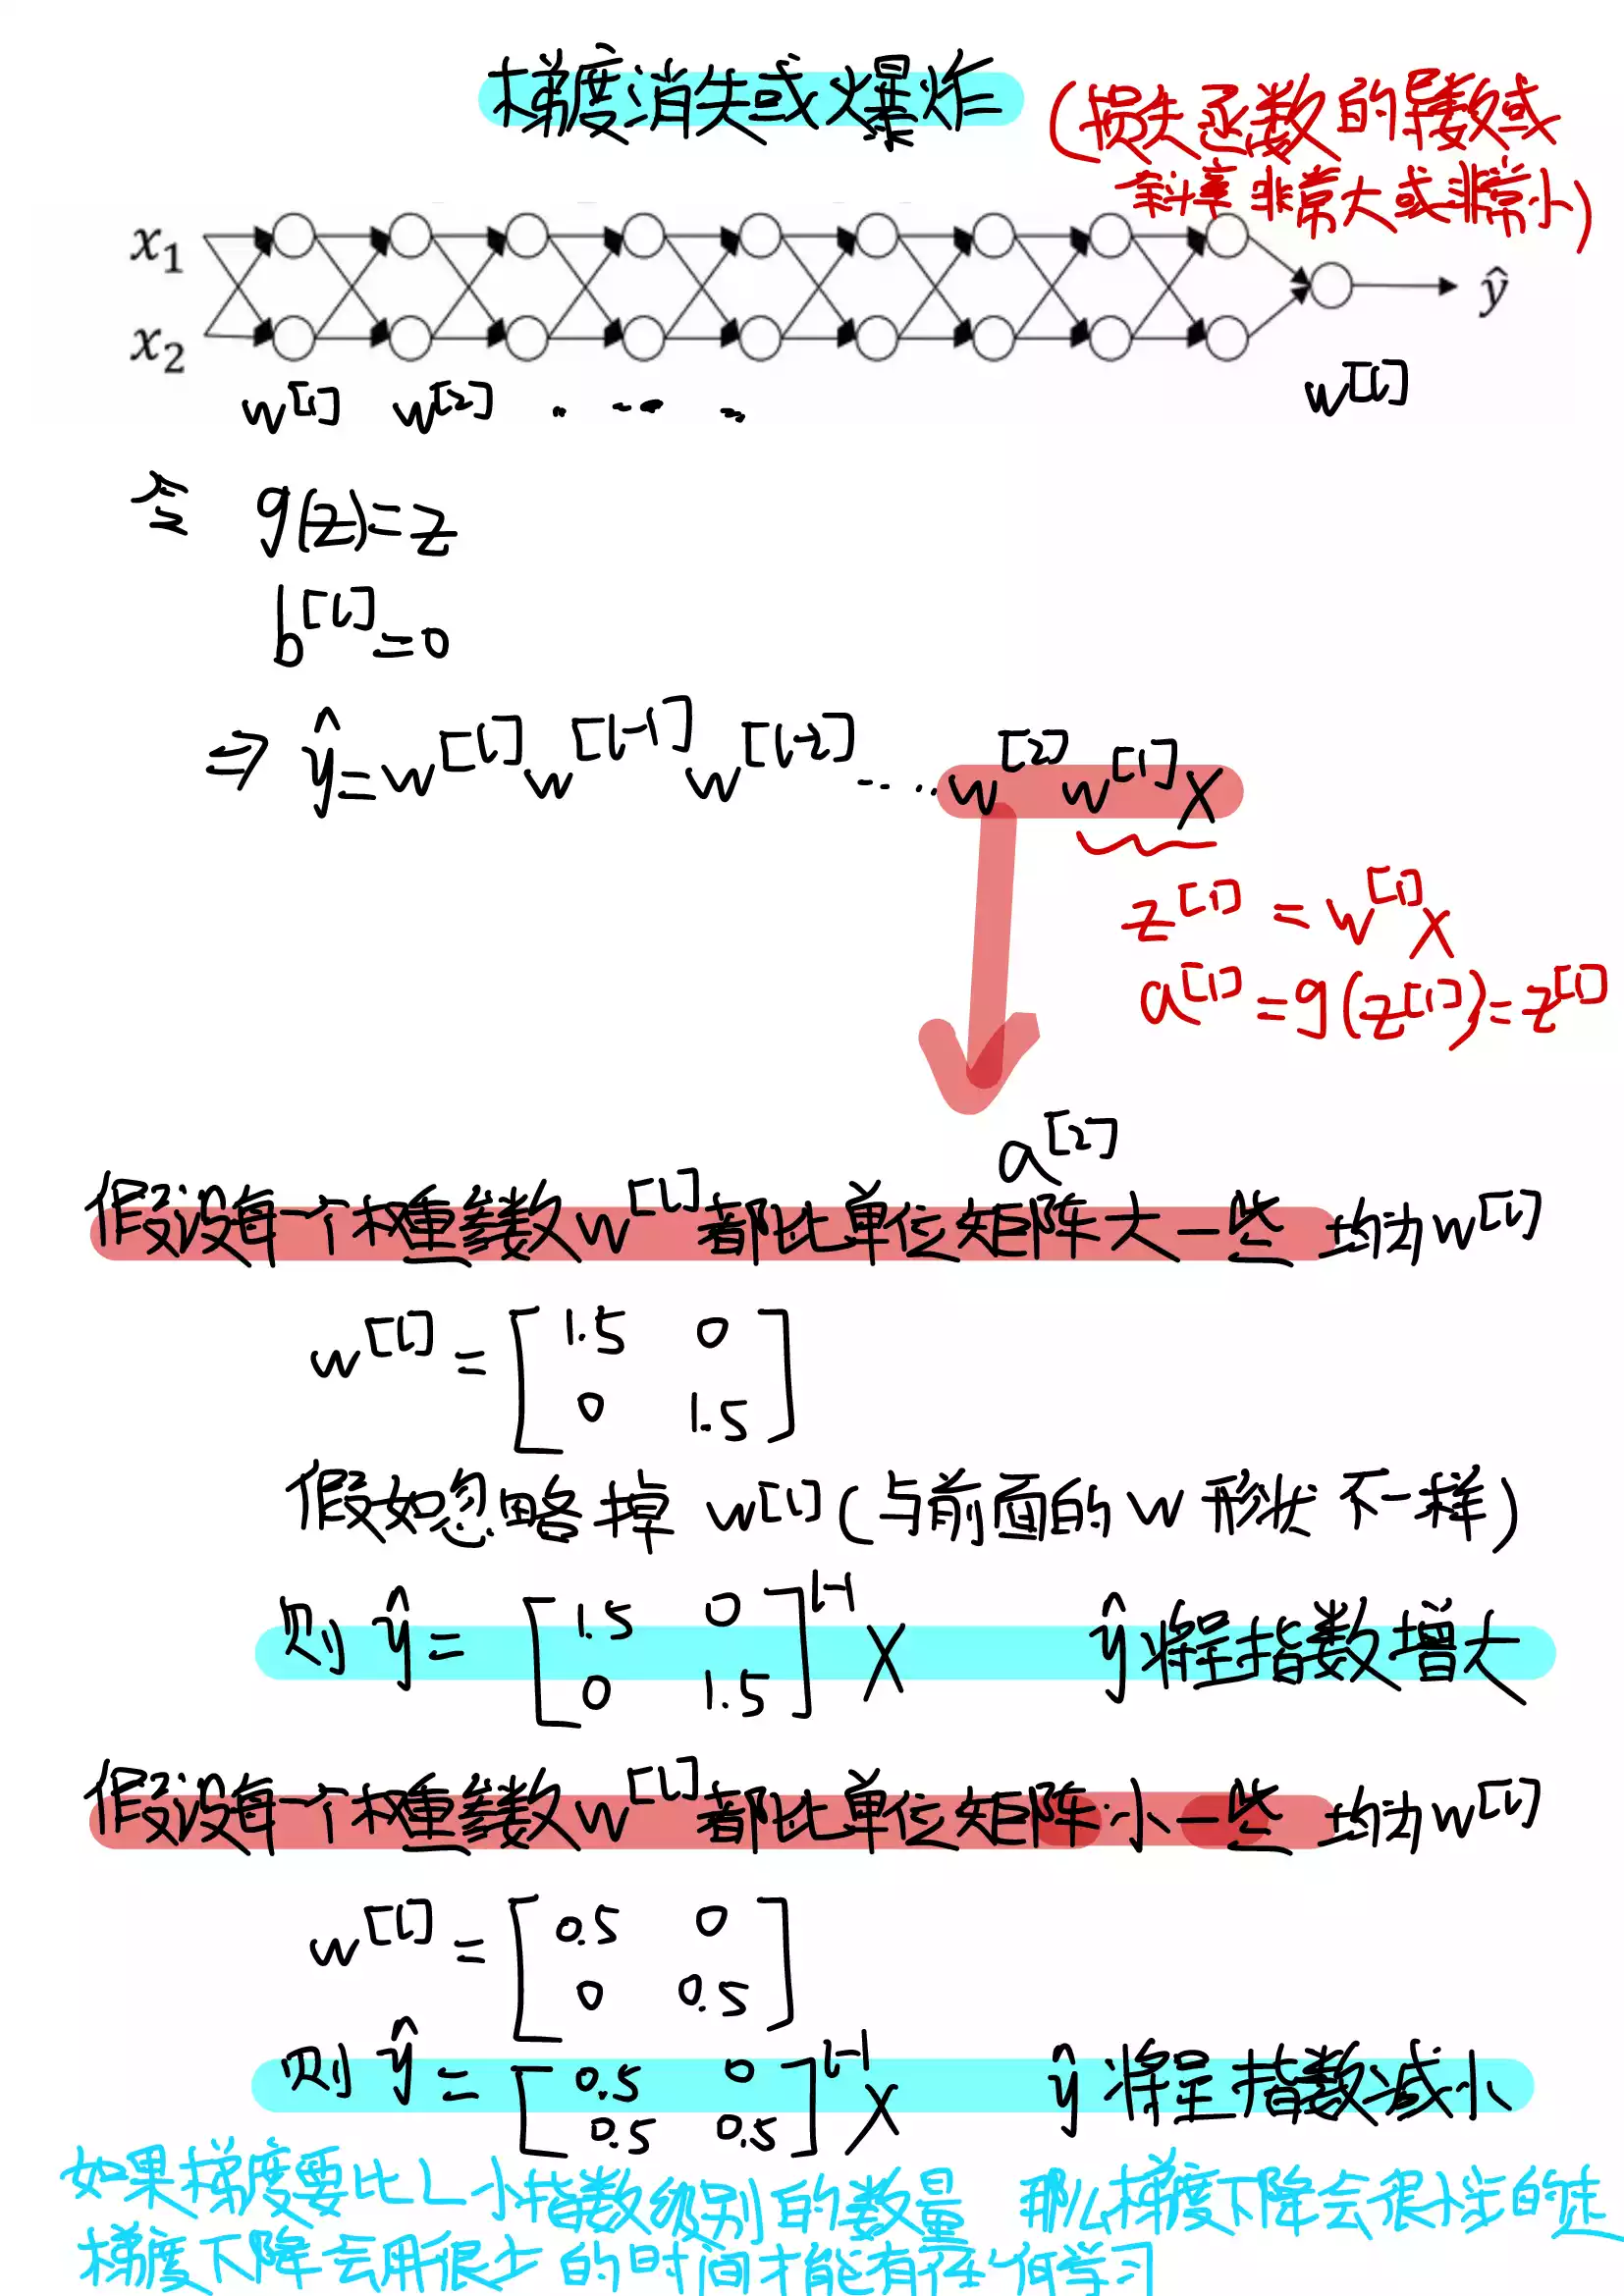 梯度消失或爆炸
(损失函数的导数或
斜率非常大或非常小)
x₁
x₂
ŷ
w[1] w[2] . ... .. w[l]
令 g(z)=z
b[l]=0
⇒ ŷ=w[l]w[l-1]w[l-2]....w[2]w[1]X
z[1] = w[1]X
a[1]=g(z[1])=z[1]
a[2]
假设每一个权重参数w[l]都比单位矩阵大一些 均为w[l]
w[l] = [1.5 0
0 1.5]
假如忽略掉 w[l](与前面的w形状不一样)
则 ŷ= [1.5 0
0 1.5]l-1 X ŷ将呈指数增大
假设每一个权重参数w[l]都比单位矩阵小一些 均为w[l]
w[l] = [0.5 0
0 0.5]
则 ŷ= [0.5 0
0.5 0.5]l-1 X ŷ将呈指数减小
如果梯度要比L小指数级别的数量 那么梯度下降会很小步的走
梯度下降会用很少的时间才能有任何学习